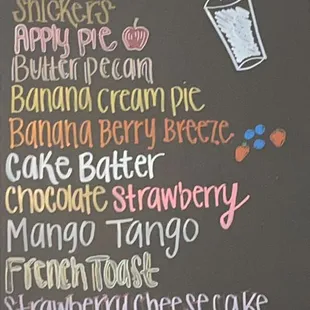 Snickers
Apply pie
Butter pecan
Banana cream pie
Banana Berry Breeze
Cake Batter
Chocolate Strawberry
Mango Tango
French Toast
Strawberry Cheesecake